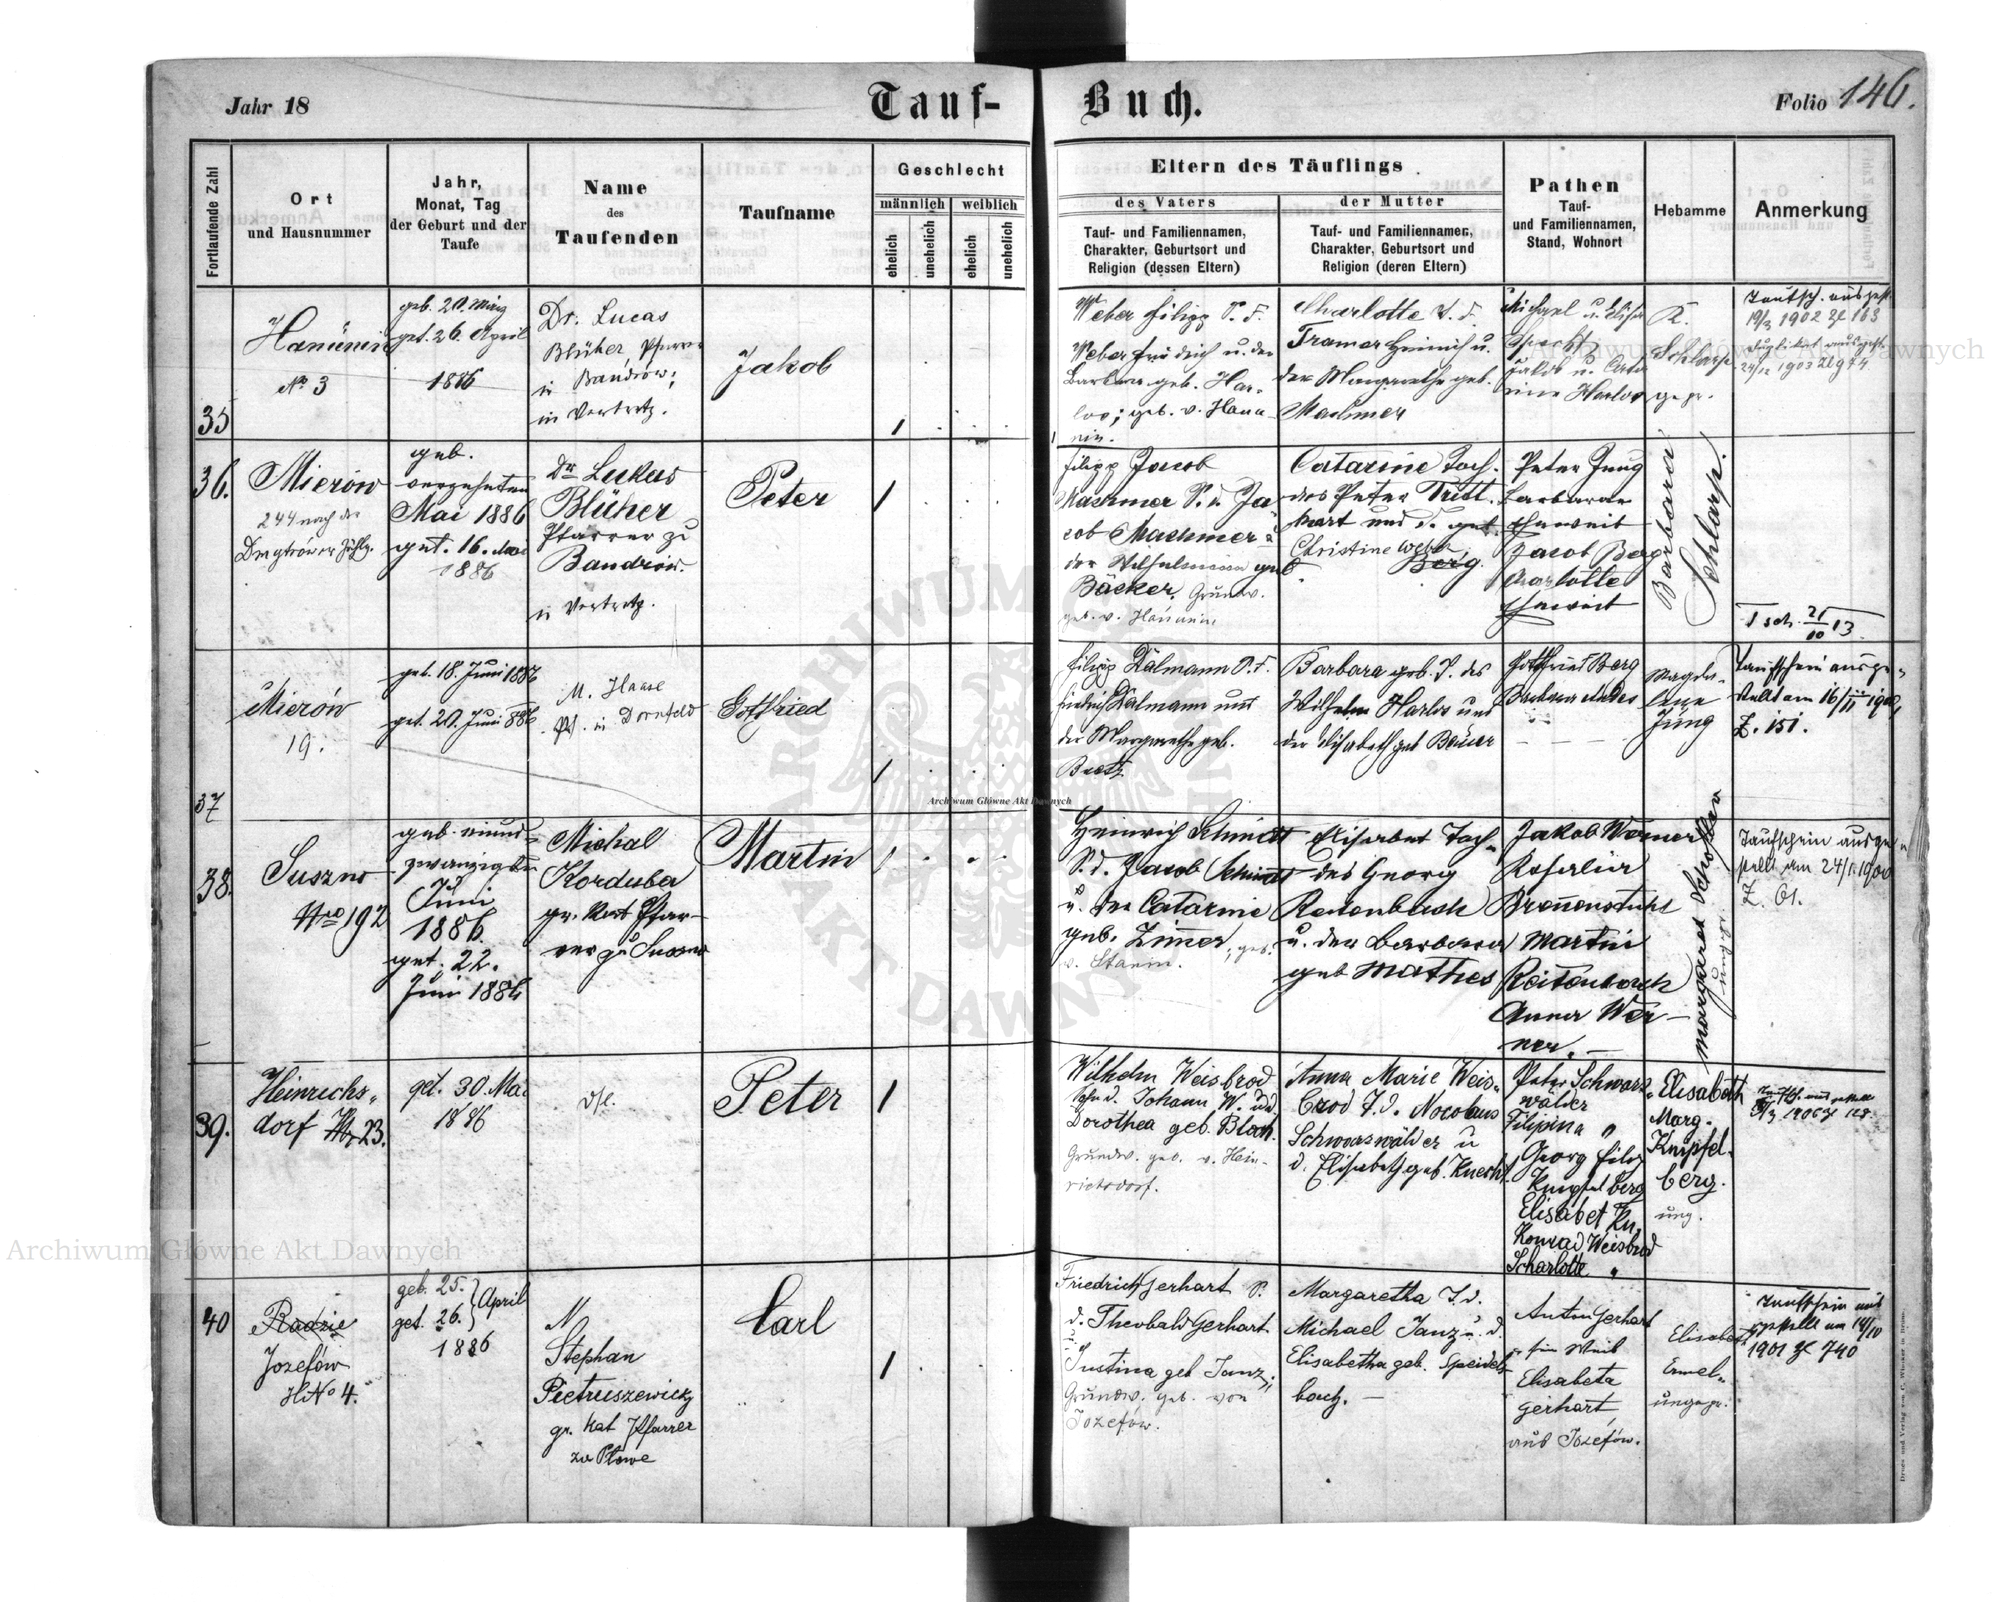 Jahr 18
Tauf-
Buch.
Folio 146.
Fortlaufende Zahl
Ort
und Hausnummer
Jahr,
Monat, Tag
der Geburt und der
Taufe
Name
des
Taufenden
Taufname
Geschlecht
männlich
weiblich
ehelich
unehelich
ehelich
unehelich
Eltern des Täuflings
des Vaters
Tauf- und Familiennamen,
Charakter, Geburtsort und
Religion (dessen Eltern)
der Mutter
Tauf- und Familiennamen,
Charakter, Geburtsort und
Religion (deren Eltern)
Pathen
Tauf-
und Familiennamen,
Stand, Wohnort
Hebamme
Anmerkung
35
Hanunin
No 3
geb. 20. März
get. 26. April
1886
Dr. Lucas
Blüher, Pfarrer
in Bandrow;
in Vertretg.
Jakob
1
Weber Filipp S. d.
Weber Friedrich u. der
Barbara geb. Har-
los; geb. v. Hanu-
nin.
Charlotte T. d.
Tramer Heinrich u.
der Margarethe geb.
Machmer
Michael u.
Specht
Jakob u. Catha
rina Harlos
K.
Schlarp
gepr.
Taufsch. ausgest.
19/3 1902 Zl 163
Duplikat ausgest.
24/12 1903 Zl 974
36.
Mierów
244 nach der
geb.
vierzehnten
Mai 1886
get. 16. Mai
1886
Dr. Lukas
Blüher
Pfarrer zu
Bandrow.
in Vertretg.
Peter
1
Filipp Jacob
Machmer S. d. Ja
cob Machmer u
der Wilhelmina geb
Bäcker. Grundw.
geb. v. Hanunin
Catarine Toch.
des Peter Tritt
hart und d. geb.
Christine Weber,
Berg.
Peter Jung
Barbara
Eheweib
Jacob Berg
Charlotte
Eheweib
Barbara
Schlarp.
T sch. 21/10 13.
37
Mierów
19.
geb. 18. Juni 1886
get. 20. Juni 886
M. Haase
Pf. in Dornfeld
Gottfried
1
Filipp Dalmann S. d.
Friedrich Dalmann und
der Margarethe geb.
Bretz
Barbara geb. T. des
Wilhelm Harlos und
der Elisabeth geb Bauer
Gottfried Berg
Barbara
Magda-
lena
Jung
Taufschein ausge-
stellt am 16/II 1908,
Z. 151.
38.
Suszno
Nro 192
geb. einund-
zwanzigsten
Juni
1886.
get. 22.
Juni 1886
Michal
Korduba
gr. kat Pfar-
rer zu Suszno
Martin
1
Heinrich Schmidt
S. d. Jacob Schmidt
u. der Catarine
geb. Zimmer; geb.
v. Stanin.
Elisarbet Toch-
des Georg
Reitenbach
u. der Barbara
geb Mathes
Jakob Werner
Rosalia
Brennenstuhl
Martin
Reitenbach
Anna Wer-
ner.
Margaret
Taufschein ausge-
stellt am 24/I 1900
Z. 61.
39.
Heinrichs-
dorf Nr. 23.
get. 30. Mai
1886
dse.
Peter
1
Wilhelm Weisbrod
Sohn d. Johann W. und
Dorothea geb. Bloch.
Grundw. geb. v. Hein-
richsdorf.
Anna Marie Weis-
brod T. d. Nocolaus
Schwarswälder u
d. Elisabeth geb. Knecht.
Peter Schwarz-
wälder
Filipina "
Georg Filip
Knipfelberg
Elisabet Kn.
Konrad Weisbrod
Scharlotte "
Elisabeth
Marg.
Knipfel-
berg.
ung.
40
Radzie
Jozefów
HNo 4.
geb. 25.
get. 26. } April
1886
N
Stephan
Pietruszewicz
gr. kat Pfarrer
zu Płowe
Carl
1
Friedrich Gerhart S.
d. Theobald Gerhart
u
Justina geb Janz;
Grundw. geb. von
Jozefów.
Margaretha T. d.
Michael Janz u. d.
Elisabetha geb. Speidel-
bach.
Anton Gerhart
u sein Weib
Elisabeta
Gerhart,
aus Jozefów.
Elisabet
Emel-
ungepr.
Taufschein aus
gestellt am 14/10
1901 Zl 740
Druck und Verlag von C. Winiker in Brünn.
Archiwum Główne Akt Dawnych
Archiwum Główne Akt Dawnych
Archiwum Główne Akt Dawnych
ARCHIWUM GŁÓWNE AKT DAWNYCH